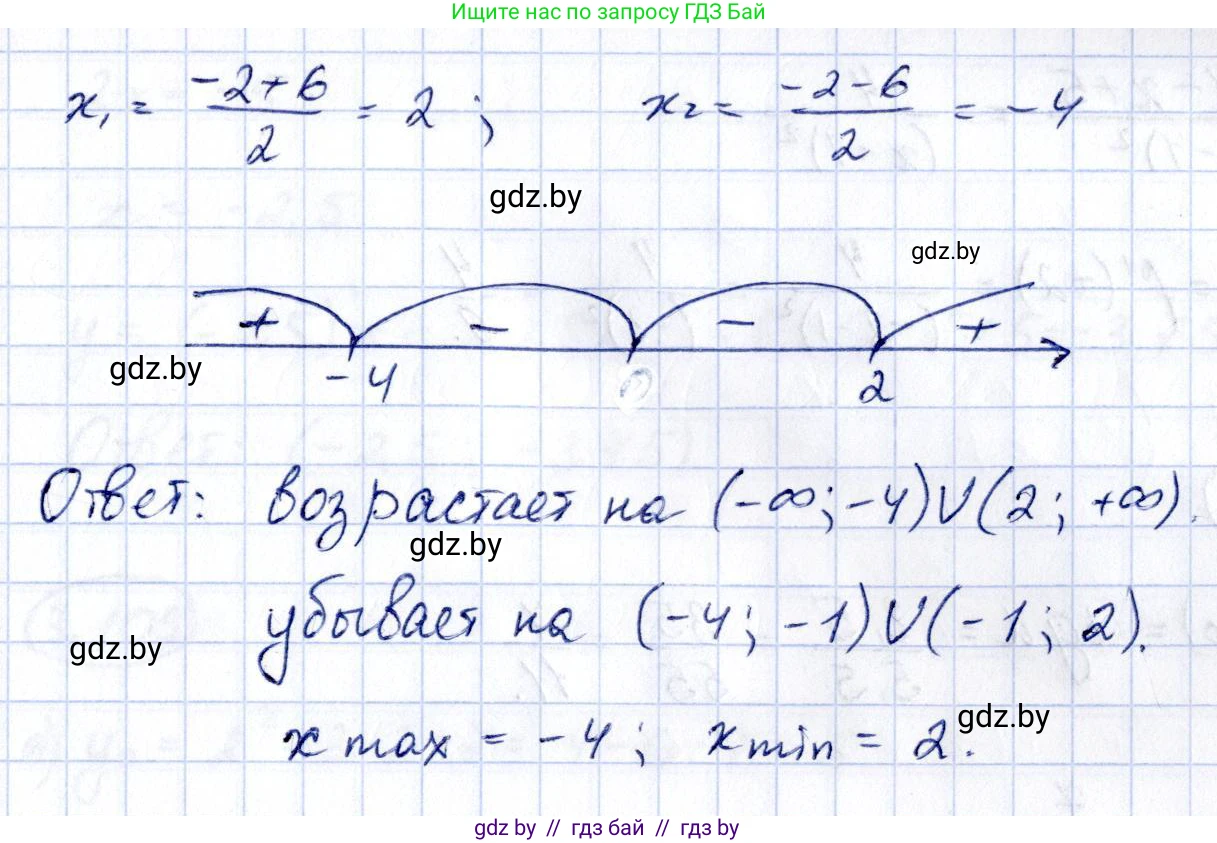 Ищите нас по запросу ГДЗ Бай
x₁ = (-2+6)/2 = 2 ; x₂ = (-2-6)/2 = -4
gdz.by
gdz.by
+ - - +
gdz.by
-4 2
Ответ: возрастает на (-∞; -4)∪(2; +∞).
gdz.by
убывает на (-4; -1)∪(-1; 2).
gdz.by
gdz.by
x max = -4; x min = 2.
gdz by // гдз бай // гдз by